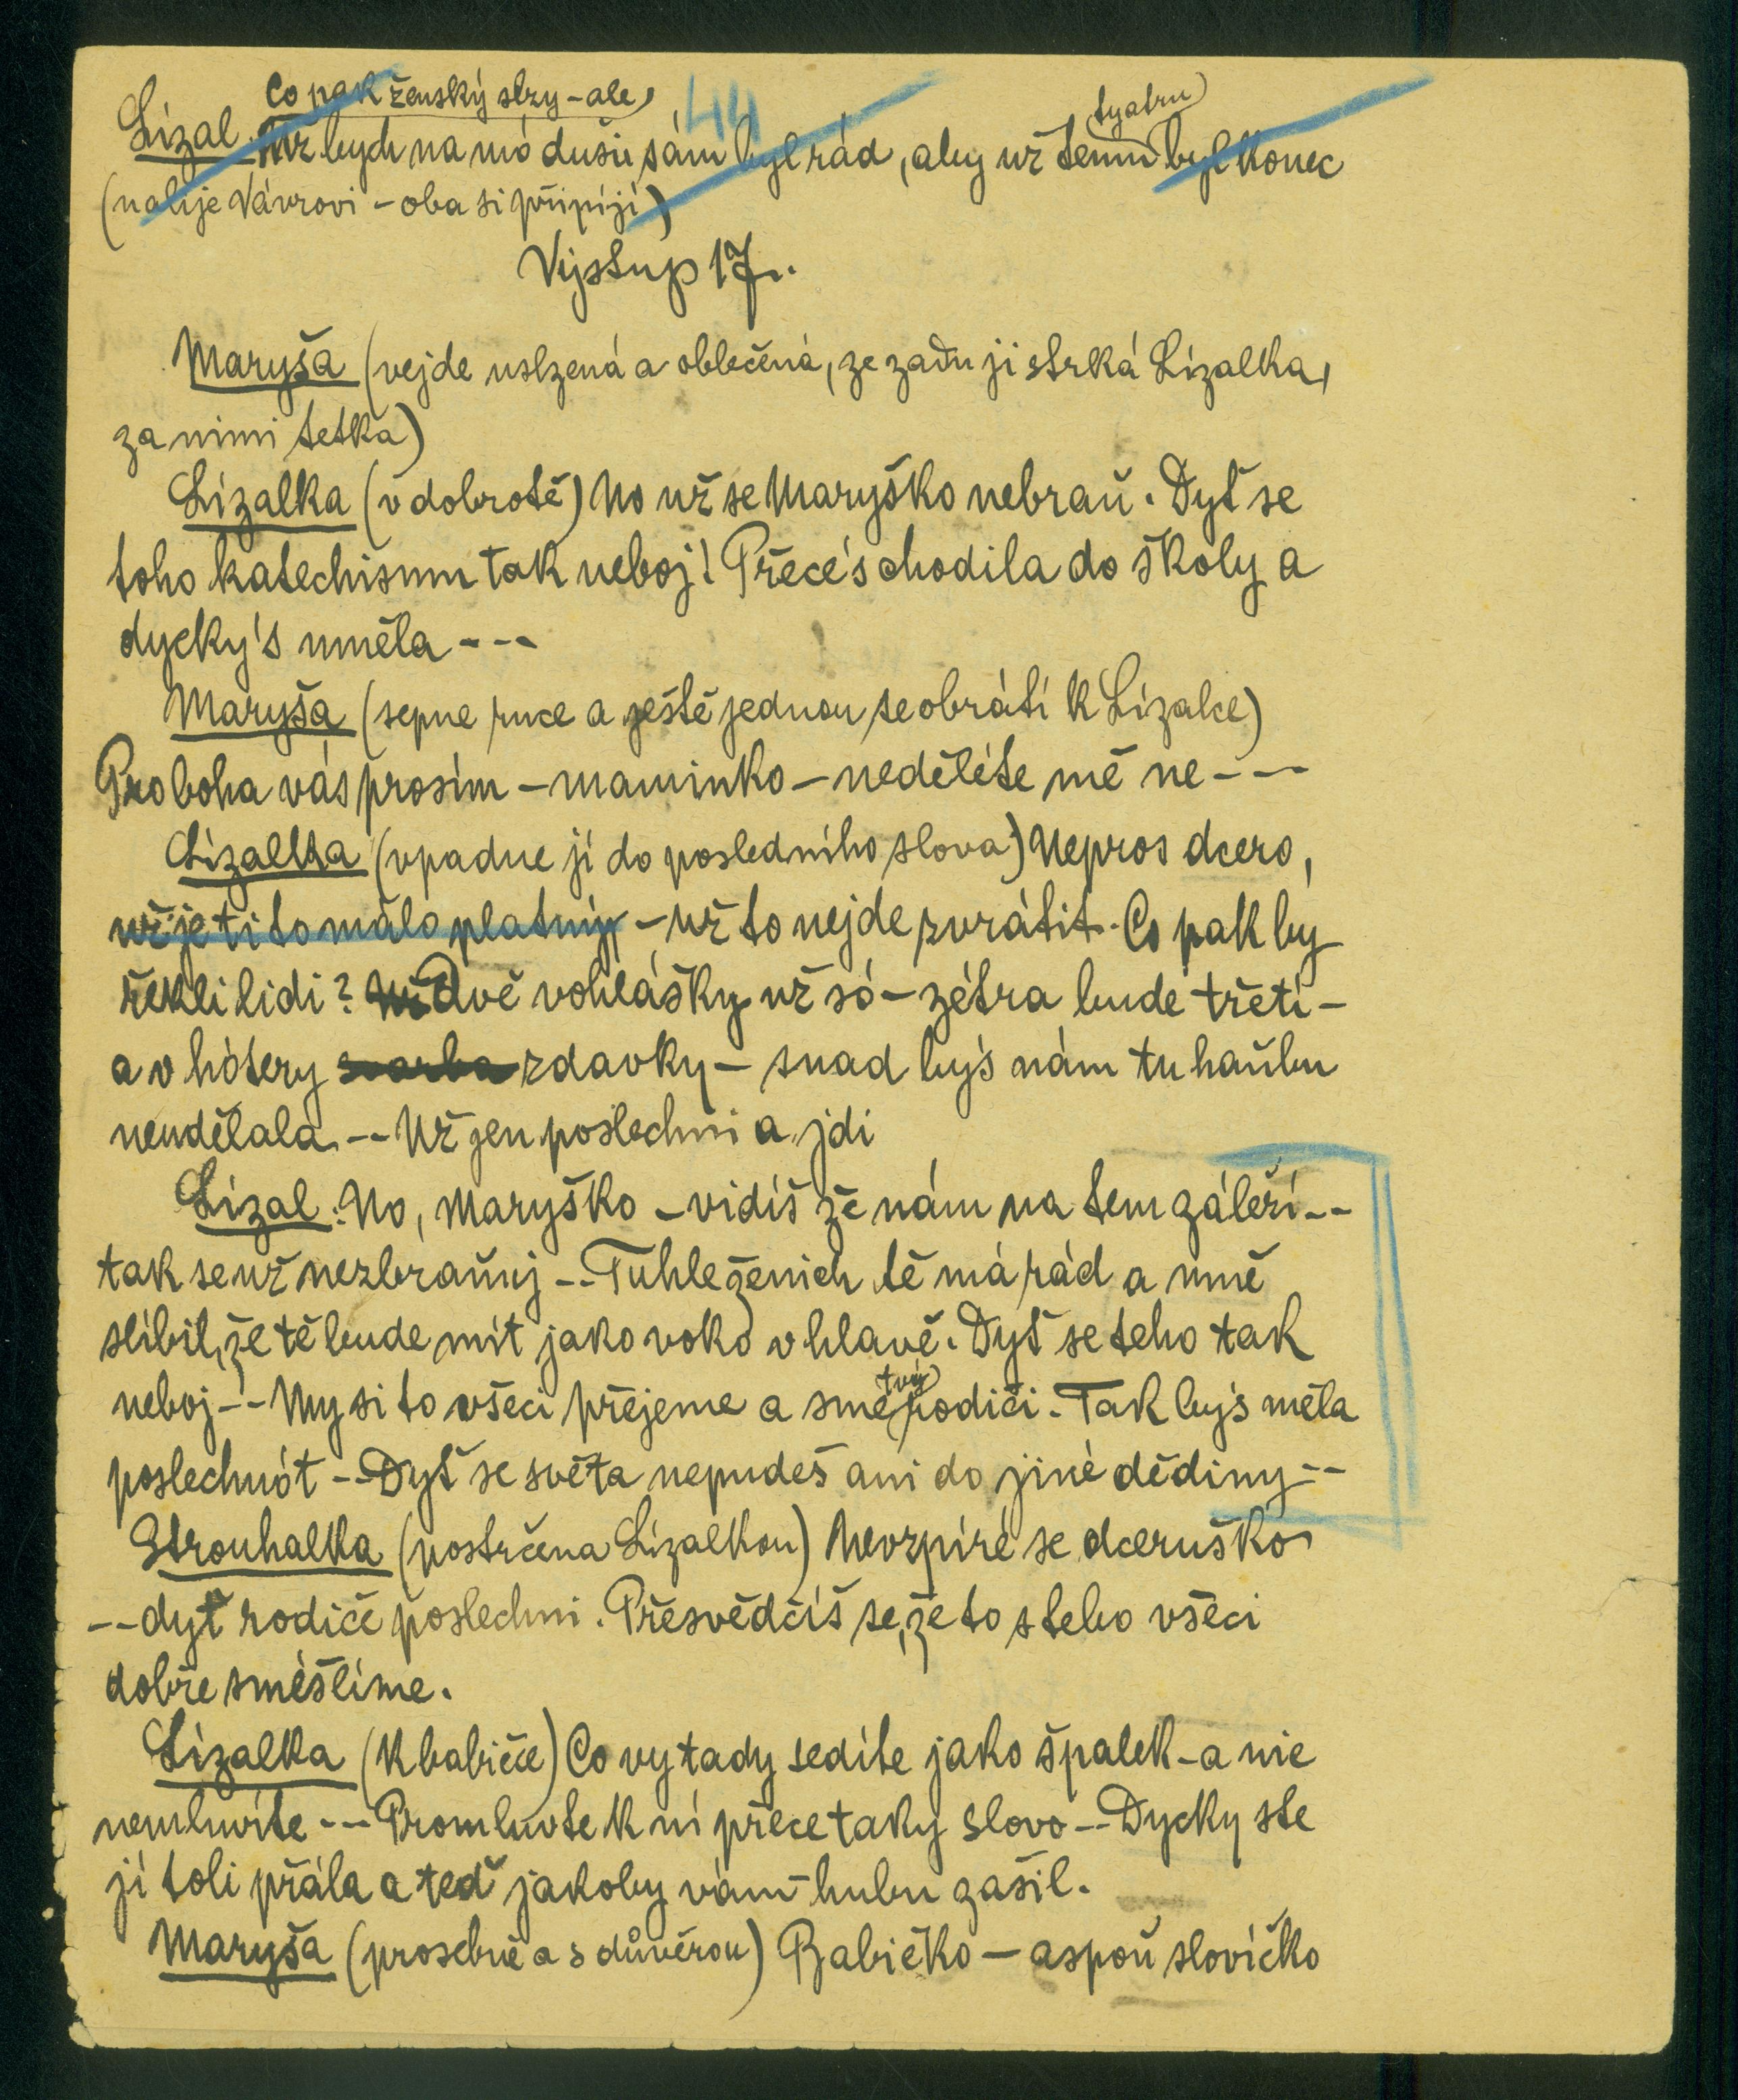 Co pak ženský slzy – ale
44
Lízal. Už bych na mó duši sám byl rád, aby už temu tyatru byl konec
(nalije Vávrovi – oba si připíjí)
Výstup 17.
Maryša (vejde uslzená a oblečená, ze zadu ji strká Lízalka,
za nimi tetka)
Lízalka (v dobrotě) No už se Maryško nebraň. Dyť se
toho katechismu tak neboj! Přece's chodila do školy a
dycky's uměla ---
Maryša (sepne ruce a ještě jednou se obrátí k Lízalce)
Pro boha vás prosím – maminko – neděléte mě ne ---
Lízalka (vpadne jí do posledního slova) Nepros dcero,
už je ti to málo platný, – už to nejde zvrátit. Co pak by
řekli lidi? Dvě vohlášky už só – zétra bude třetí –
a v hótery svarba zdavky – snad bys nám tu haňbu
neudělala -- Už jen poslechni a jdi
Lízal: No, Maryško – vidíš že nám na tem záleží --
tak se už nezbraňuj -- Tuhle ženich tě má rád a mně
slíbil, že tě bude mít jako voko v hlavě. Dyť se teho tak
neboj -- My si to všeci přejeme a sme tvý rodiči. Tak bys měla
poslechnót -- Dyť se světa nepudeš ani do jiné dědiny --
Strouhalka (postrčena Lízalkou) Nevzpíré se dceruško
-- dyť rodiče poslechni. Přesvědčíš se, že to s tebo všeci
dobře smêšlíme.
Lízalka (k babičce) Co vy tady sedíte jako špalek – a nic
nemluvíte --- Promluvte k ní přece taky slovo -- Dycky ste
jí toli přála a teď jakoby vám hubu zašil.
Maryša (prosebně a s důvěrou) Babičko – aspoň slovíčko